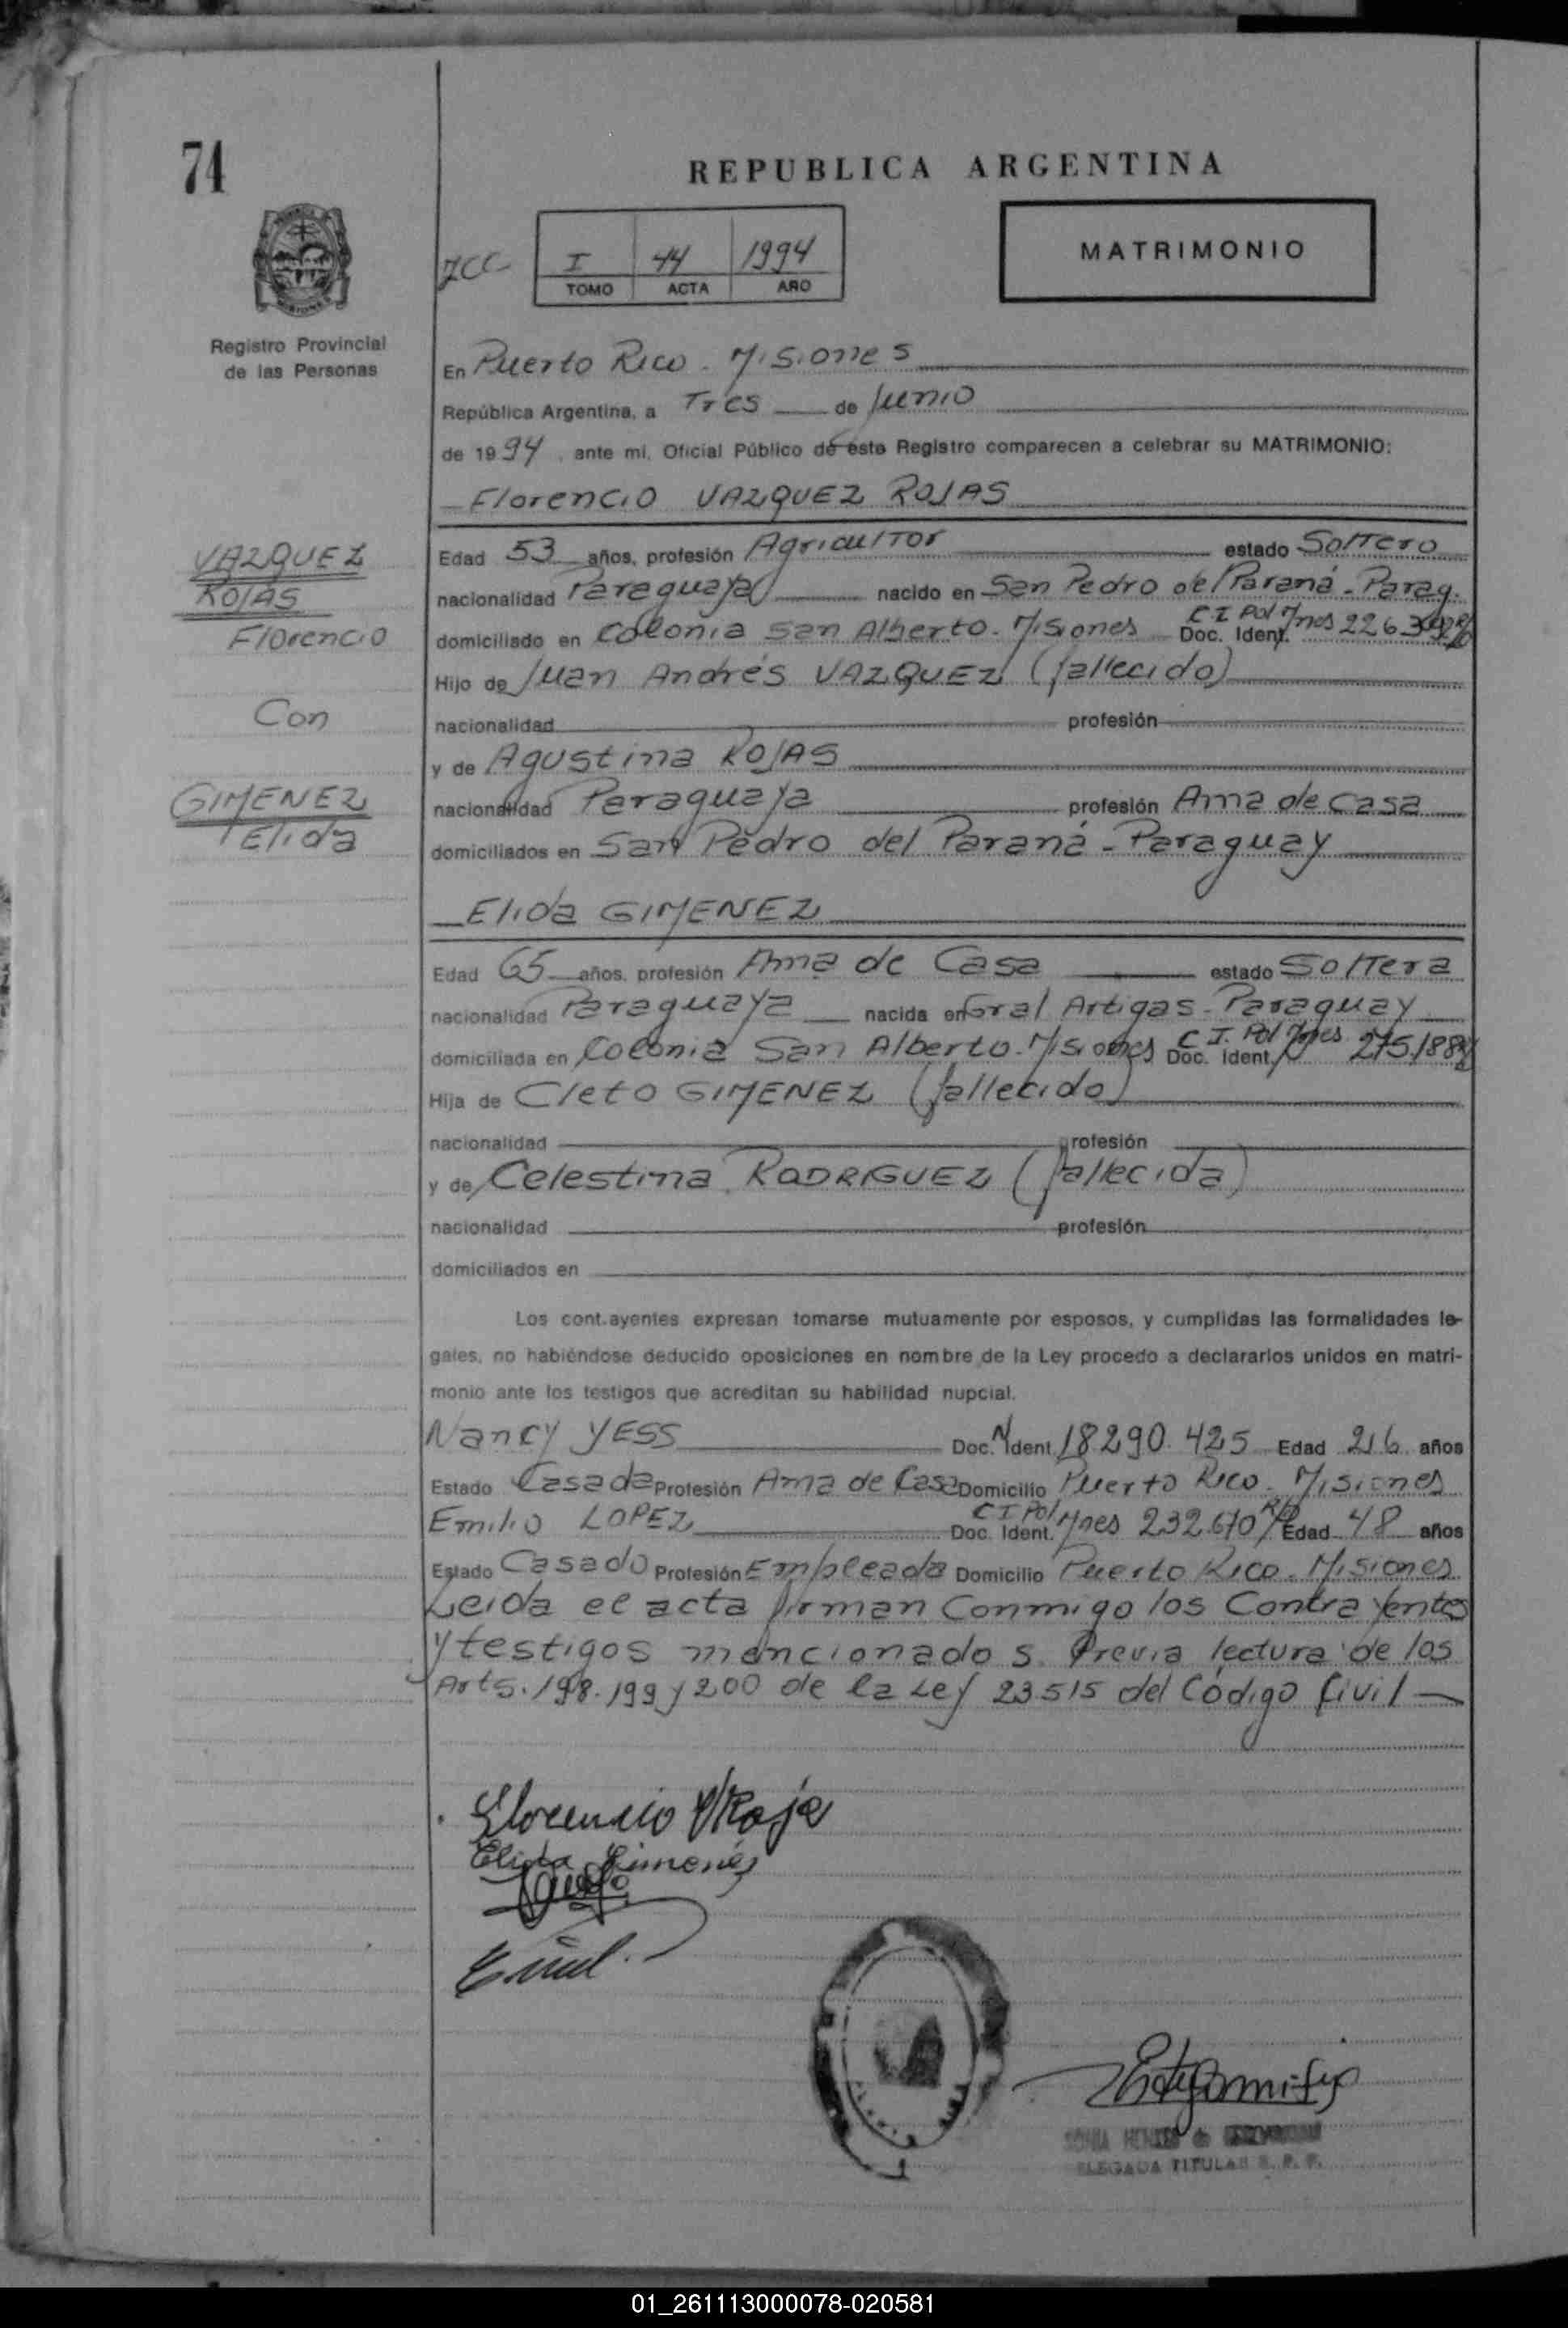 74
REPUBLICA ARGENTINA
I 44 1994
TOMO ACTA AÑO
MATRIMONIO
Registro Provincial
de las Personas
En Puerto Rico - Misiones
República Argentina, a Tres de Junio
de 1994, ante mi, Oficial Público de este Registro comparecen a celebrar su MATRIMONIO:
Florencio VAZQUEZ ROJAS
VAZQUEZ
ROJAS
Florencio
Con
GIMENEZ
Elida
Edad 53 años, profesión Agricultor estado Soltero
nacionalidad Paraguaya nacido en San Pedro del Paraná - Parag.
domiciliado en Colonia San Alberto - Misiones Doc. Ident. C I Pol Mnes
Hijo de Juan Andrés VAZQUEZ (fallecido)
nacionalidad profesión
y de Agustina ROJAS
nacionalidad Paraguaya profesión Ama de casa
domiciliados en San Pedro del Paraná - Paraguay
Elida GIMENEZ
Edad 65 años, profesión Ama de Casa estado Soltera
nacionalidad Paraguaya nacida en Gral Artigas - Paraguay
domiciliada en Colonia San Alberto - Misiones Doc. Ident. C I. Pol Mnes
Hija de Cleto GIMENEZ (fallecido)
nacionalidad profesión
y de Celestina RODRIGUEZ (fallecida)
nacionalidad profesión
domiciliados en
Los cont.ayentes expresan tomarse mutuamente por esposos, y cumplidas las formalidades le-
gales, no habiéndose deducido oposiciones en nombre de la Ley procedo a declararlos unidos en matri-
monio ante los testigos que acreditan su habilidad nupcial.
Nancy YESS Doc. Ident. 18.290.425 Edad 26 años
Estado Casada Profesión Ama de Casa Domicilio Puerto Rico - Misiones
Emilio LOPEZ Doc. Ident. C I Pol Mnes 232.670 Edad 48 años
Estado Casado Profesión Empleada Domicilio Puerto Rico - Misiones
Leida el acta firman Conmigo los Contrayentes
y testigos mencionados. Previa lectura de los
Arts. 198. 199 y 200 de la Ley 23.515 del Código Civil
Florencio V Roja
Elida Gimenéz
SONIA de
DELEGADA TITULAR R. P. P.
01_261113000078-020581